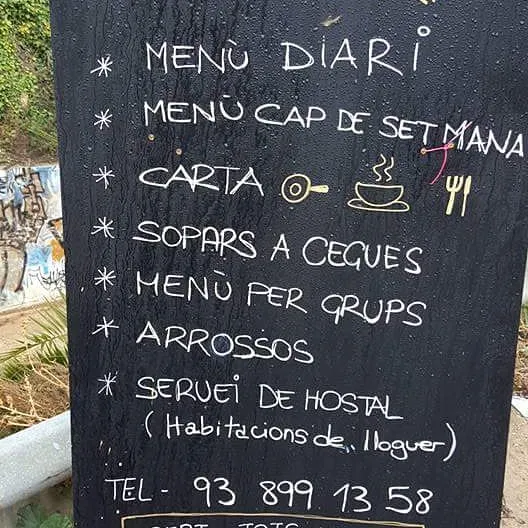 * MENÙ DIARI
* MENÙ CAP DE SETMANA
* CARTA
* SOPARS A CEGUES
* MENÙ PER GRUPS
* ARROSSOS
* SERVEI DE HOSTAL
(Habitacions de lloguer)
TEL - 93 899 13 58